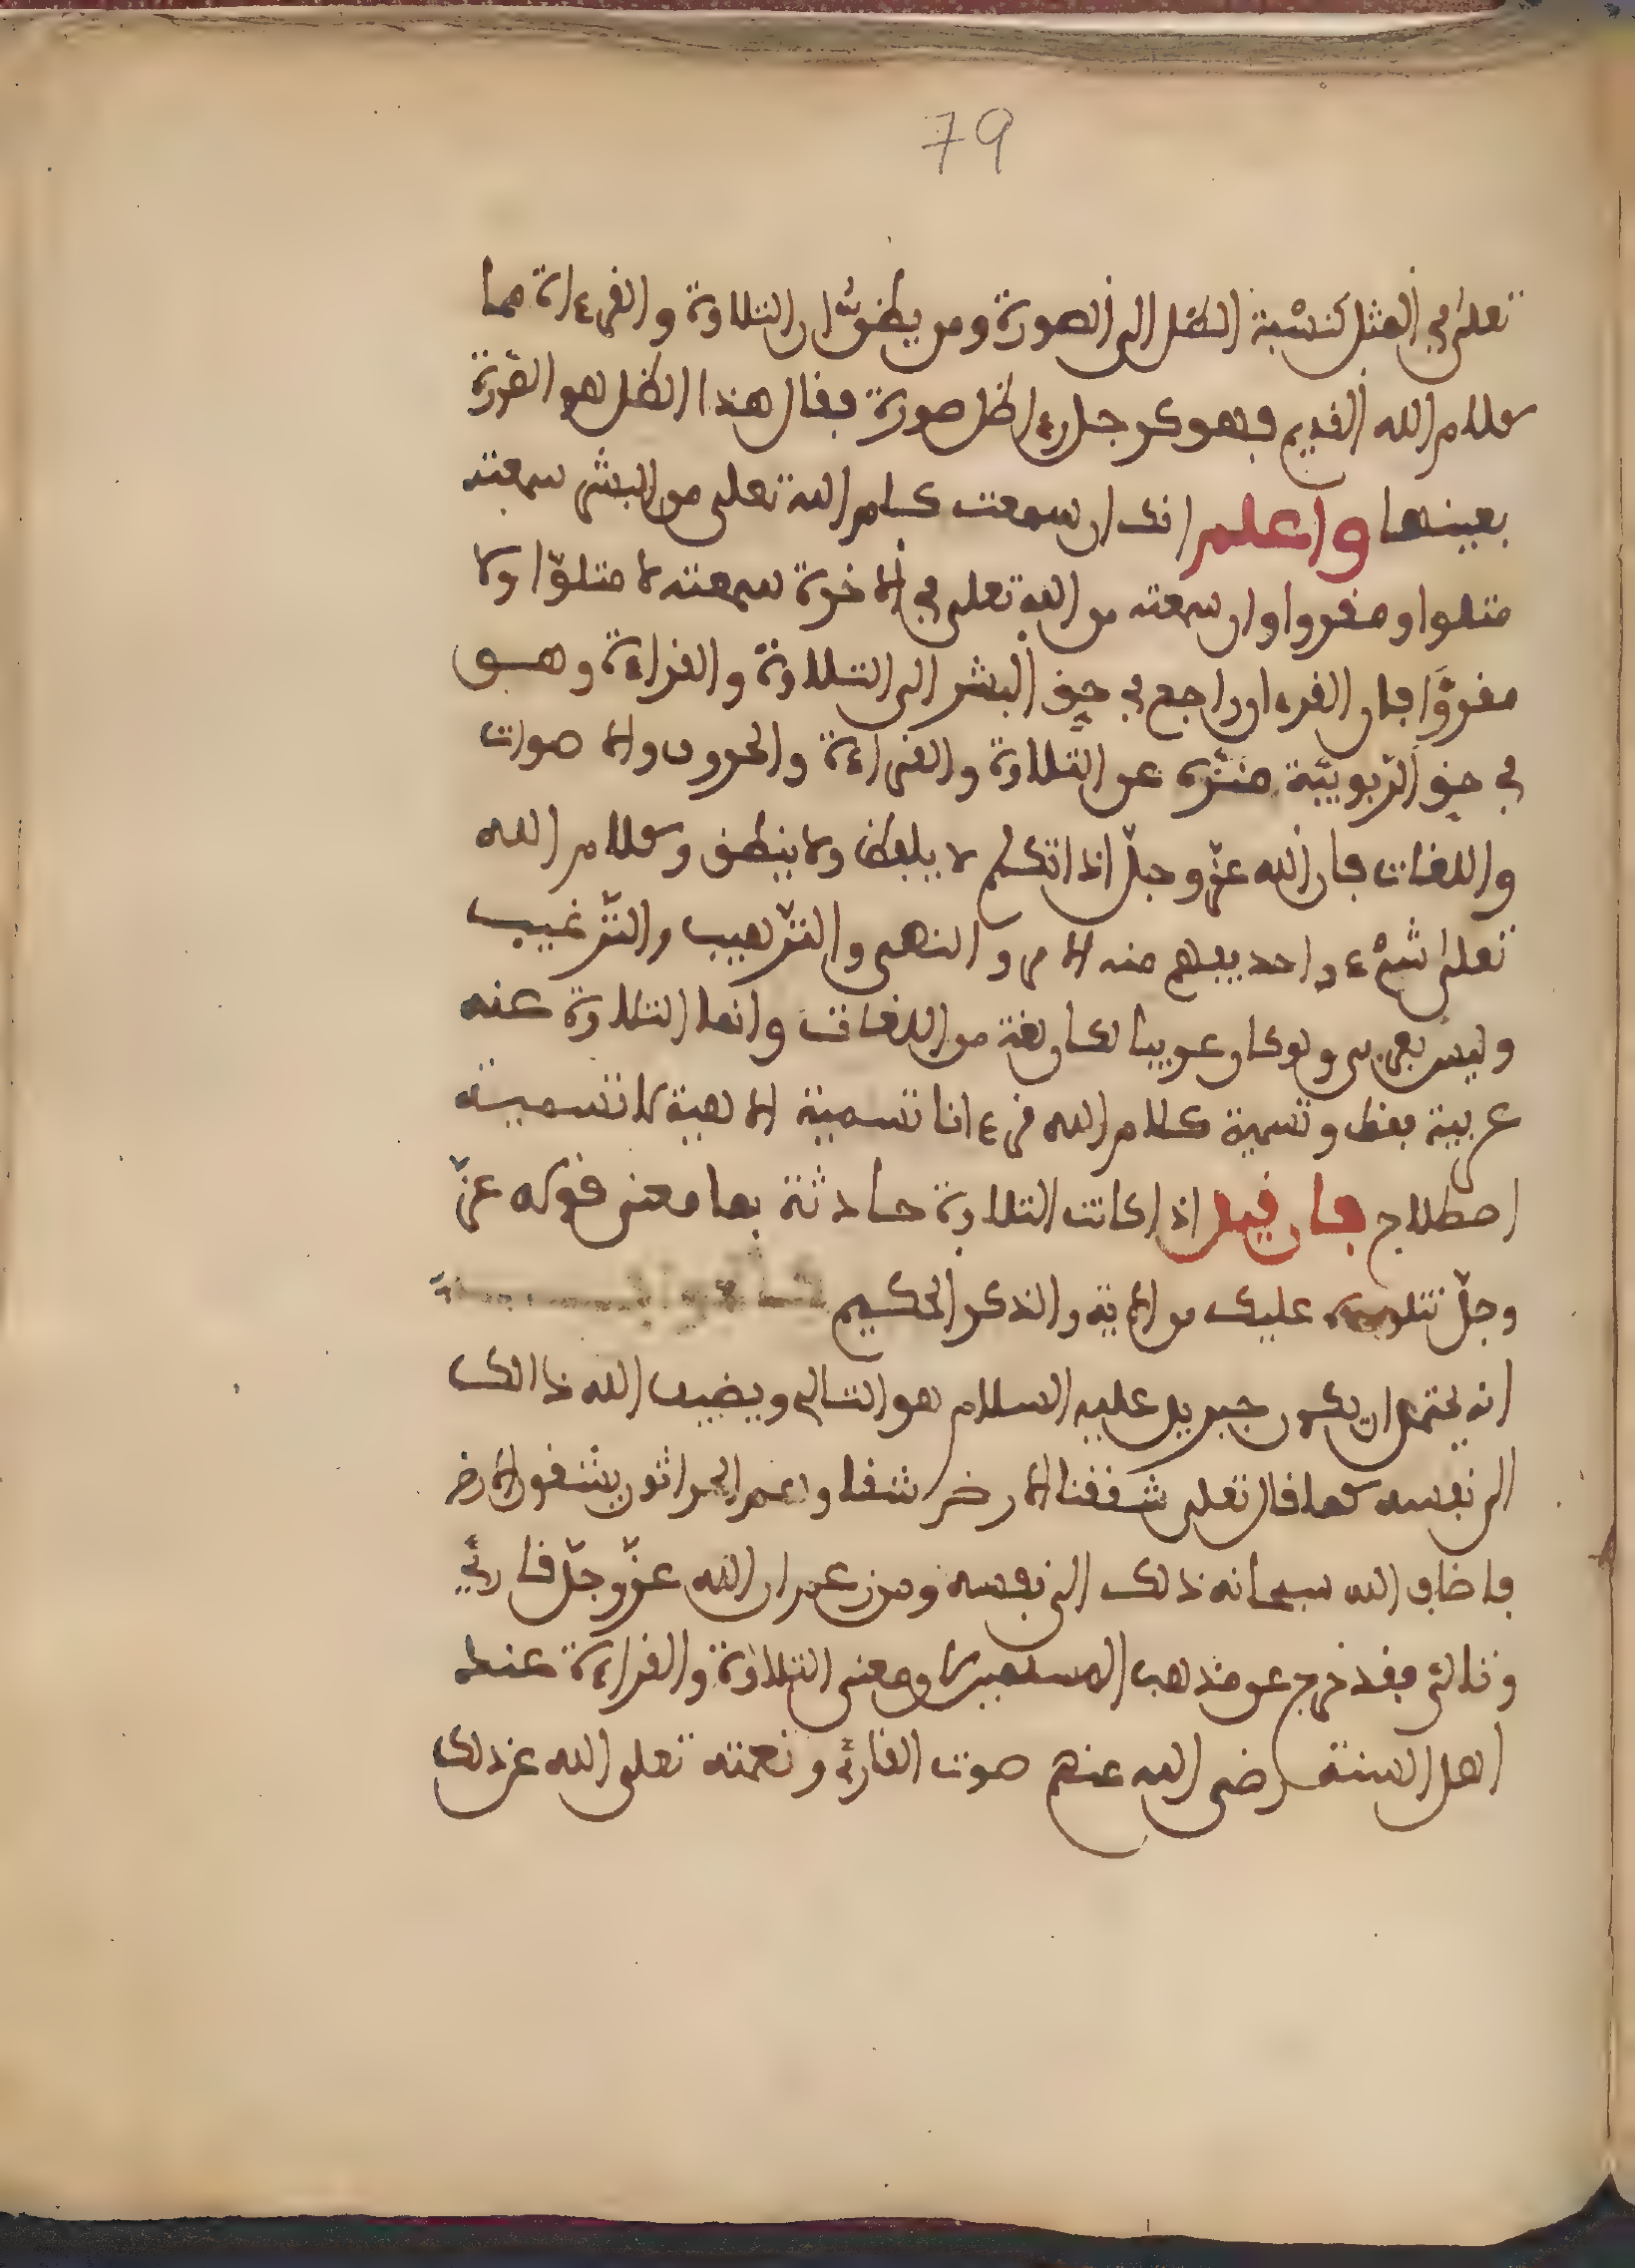 79
تعلى في المثل كنسبة الظل الى الصورة ومن يظن ان التلاوة والقرءاة هما
كلام الله القديم فهو كرجل رءا ظل صورة فقال هذا الظل هو الصورة
بعينها واعلم انك ان سمعت كلام الله تعلى من البشر سمعته
متلوا ومقروا وان سمعته من الله تعلى في الاخرة سمعته لا متلوّا ولا
مقروَّا فان القرءان راجع في حق البشر الى التلاوة والقراءة وهو
في حق الربوبيّة منزه عن التلاوة والقراءة والحروف والاصوات
واللغات فان الله عزّ وجلّ اذا تكلم لا يلفظ ولا ينطق وكلام الله
تعلى شيْء واحد يفهم منه الامر والنهى والتّرهيب والتّرغيب
وليس بعربى ولو كان عربيا لكان لغة من اللغات وانما التلاوة عنه
عربية فقط وتسمية كلام الله قرءانا تسمية الاهية لا تسمية
اصطلاح فان قيل اذا كانت التلاوة حادثة بما معنى قوله عزّ
وجلّ نتلوه عليك من الاية والذكر الحكيم
انه يحتمل ان يكون جبريل عليه السلام هو التالى ويضيف الله ذالك
الى نفسه كما قال تعلى شققنا الارض شقا وهم الحراثون يشقون الارض
فاضاف الله سبحانه ذلك الى نفسه ومن زعم ان الله عزّ وجلّ قارئ
وتالى فقد خرج عن مذهب المسلمين ومعنى التلاوة والقراءة عند
اهل السنة رضى الله عنهم صوت القارئ ونغمته تعلى الله عن ذلك